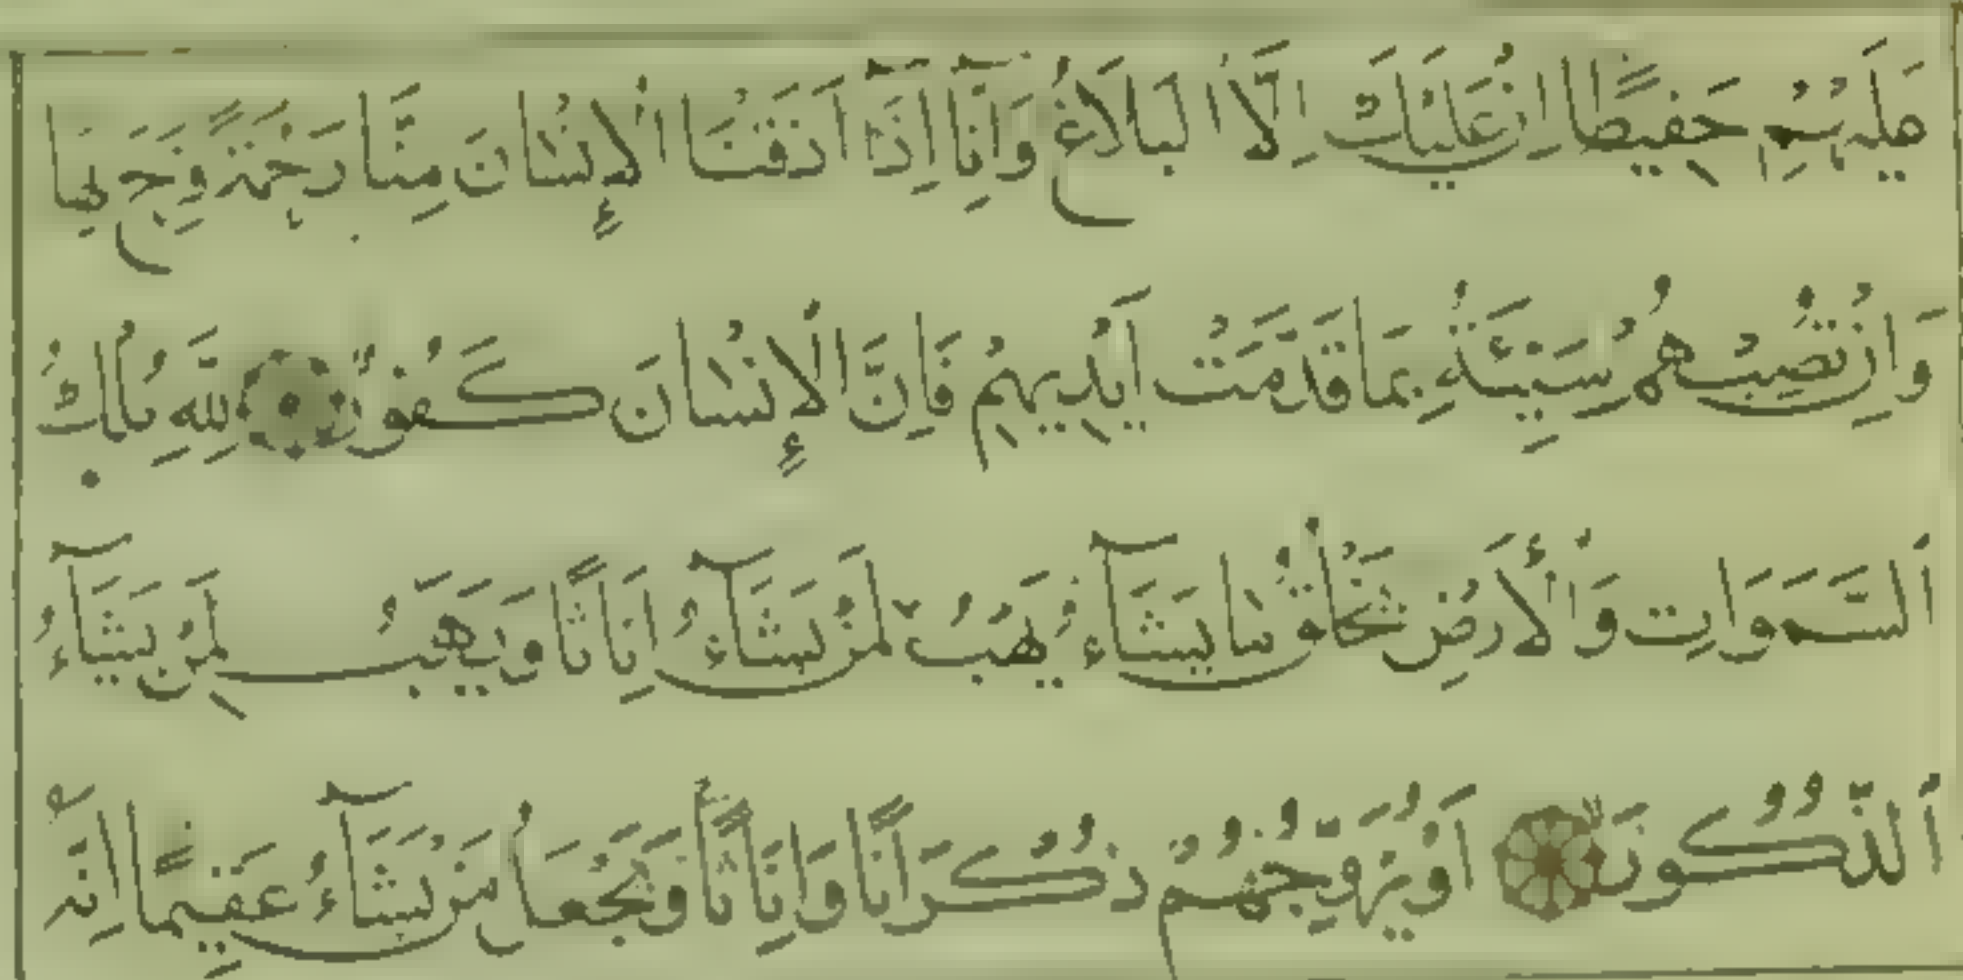 عَلَيْهِمْ حَفِيظًا اِنْ عَلَيْكَ اِلَّا الْبَلَاغُ وَاِنَّٓا اِذَٓا اَذَقْنَا الْاِنْسَانَ مِنَّا رَحْمَةً فَرِحَ بِهَا
وَاِنْ تُصِبْهُمْ سَيِّئَةٌ بِمَا قَدَّمَتْ اَيْدِيهِمْ فَاِنَّ الْاِنْسَانَ كَفُورٌ لِلّٰهِ مُلْكُ
اَلسَّمٰوَاتِ وَالْاَرْضِ يَخْلُقُ مَا يَشَٓاءُ يَهَبُ لِمَنْ يَشَٓاءُ اِنَاثًا وَيَهَبُ لِمَنْ يَشَٓاءُ
اَلذُّكُورَ اَوْ يُزَوِّجُهُمْ ذُكْرَانًا وَاِنَاثًا وَيَجْعَلُ مَنْ يَشَٓاءُ عَقِيمًا اِنَّهُ